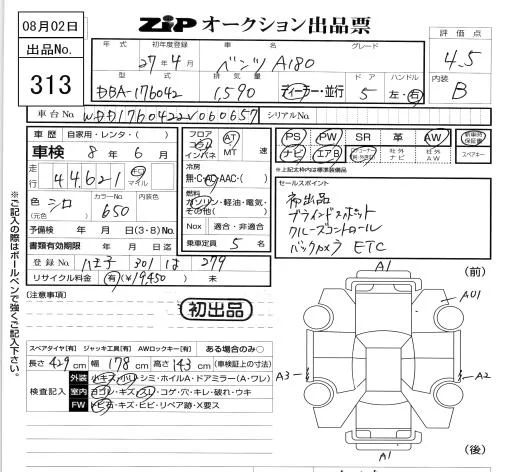 08月02日
出品No.
313
ZIP オークション出品票
評価点
4.5
内装
B
年式 初年度登録 車名 グレード
27年4月 ベンツ A180
型式 排気量 ドア ハンドル
DBA-176042 1,590 ディーラー・並行 5 左・右
車台No. WDD1760422V060657 シリアルNo.
車歴 自家用・レンタ・( )
車検 8年 6月
走行 44,621 km マイル
色 シロ (元色) カラーNo. 650 内装色
予備検 年 月 日(3・8)No.
書類有効期限 年 月 日
登録No. 八王子 301 は 279
リサイクル料金 有(¥19450) 無
フロア コラム インパネ AT MT 速
冷房
無・C・AC・AAC・( )
燃料
ガソリン・軽油・電気・その他( )
Nox 適合・非適合
乗車定員 5 名
PS PW SR 革 AW 新車時保証書
ナビ エアB 社外ナビ 社外AW スペアキー
※上記太枠内は標準装備品
セールスポイント
初出品
ブラインドスポット
クルーズコントロール
バックカメラ ETC
※ご記入の際はボールペンで強くご記入下さい。
〔注意事項〕
初出品
スペアタイヤ[有] ジャッキ工具[有] AWロックキー[有] ある場合のみ○
長さ 429 cm 幅 178 cm 高さ 143 cm (車検証上の寸法)
検査記入
外装 小キズ・小凹・シミ・ホイルA・ドアミラー(A・ワレ)
室内 ヨゴレ・キズ・スレ・コゲ・穴・キレ・破れ・ウキ
FW トビ石・キズ・ヒビ・リペア跡・X要ス
A1
(前)
A01
A3
A2
A1
(後)